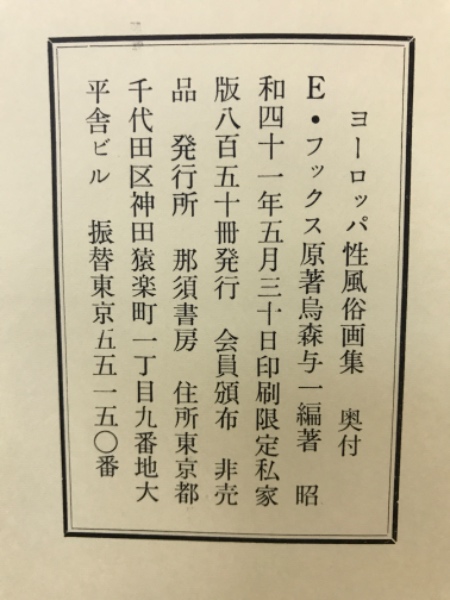 ヨーロッパ性風俗画集　奥付
E・フックス原著烏森与一編著　昭
和四十一年五月三十日印刷限定私家
版八百五十冊発行　会員頒布　非売
品　発行所　那須書房　住所東京都
千代田区神田猿楽町一丁目九番地大
平舎ビル　振替東京五五一五〇番